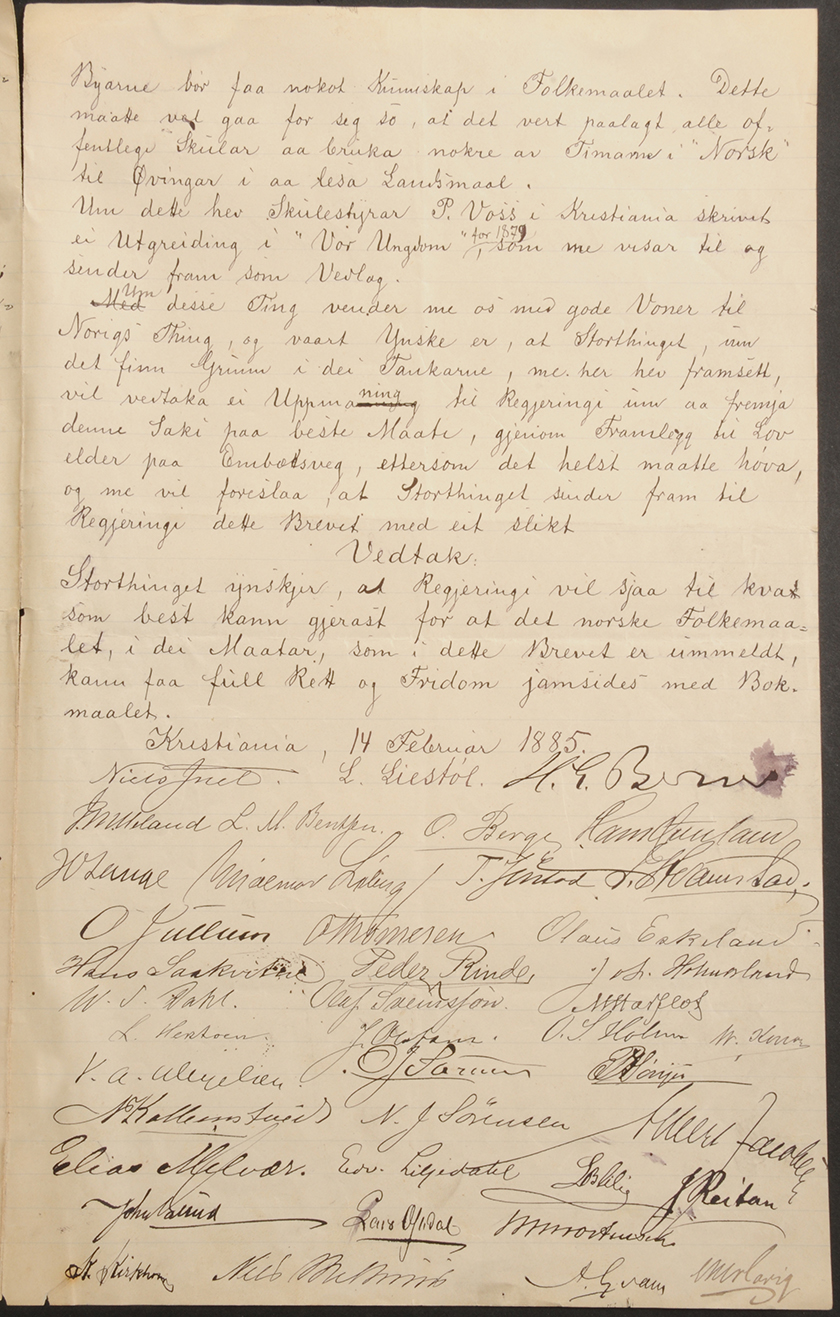 Byarne bør faa nokot Kunnskap i Folkemaalet. Dette
maatte vel gaa for seg so, at det vert paalagt alle of-
fentlege Skular aa bruka nokre av Timarne i "Norsk"
til Øvingar i aa lesa Landsmaal.
Um dette hev Skulestyrar P. Voss i Kristiania skrivet
ei Utgreiding i "Vor Ungdom" for 1879, som me visar til og
sender fram som Vedlag.
Med Um desse Ting vender me os med gode Voner til
Norigs Thing, og vaart Ynske er, at Storthinget, um
det finn Grunn i dei Tankarne, me her hev framsett,
vil vedtaka ei Uppmaning til Regjeringi um aa fremja
denne Saki paa beste Maate, gjenom Framlegg til Lov
elder paa Embætsveg, ettersom det helst maatte høva,
og me vil foreslaa, at Storthinget sender fram til
Regjeringi dette Brevet med eit slikt
Vedtak:
Storthinget ynskjer, at Regjeringi vil sjaa til kvat
som best kann gjerast for at det norske Folkemaa=
let, i dei Maatar, som i dette Brevet er ummeldt,
kann faa full Rett og Fridom jamsides med Bok-
maalet.
Kristiania, 14 Februar 1885.
Niels Juel. L. Liestøl. H. E. Berner
L. M. Bentsen. O. Berge
T.
O Jullum Olaus Eskeland
Hans Peder Rinde,
W. S. Dahl. Olaf Sveinsjøn.
O. S. Holm W.
V. A. Wexelsen. O J Sørum
N. J. Sørensen Albert Jacobsen
Elias Melvær. Edv. Liljedahl J Reitan
Lars
N. Kirkhorn Nils